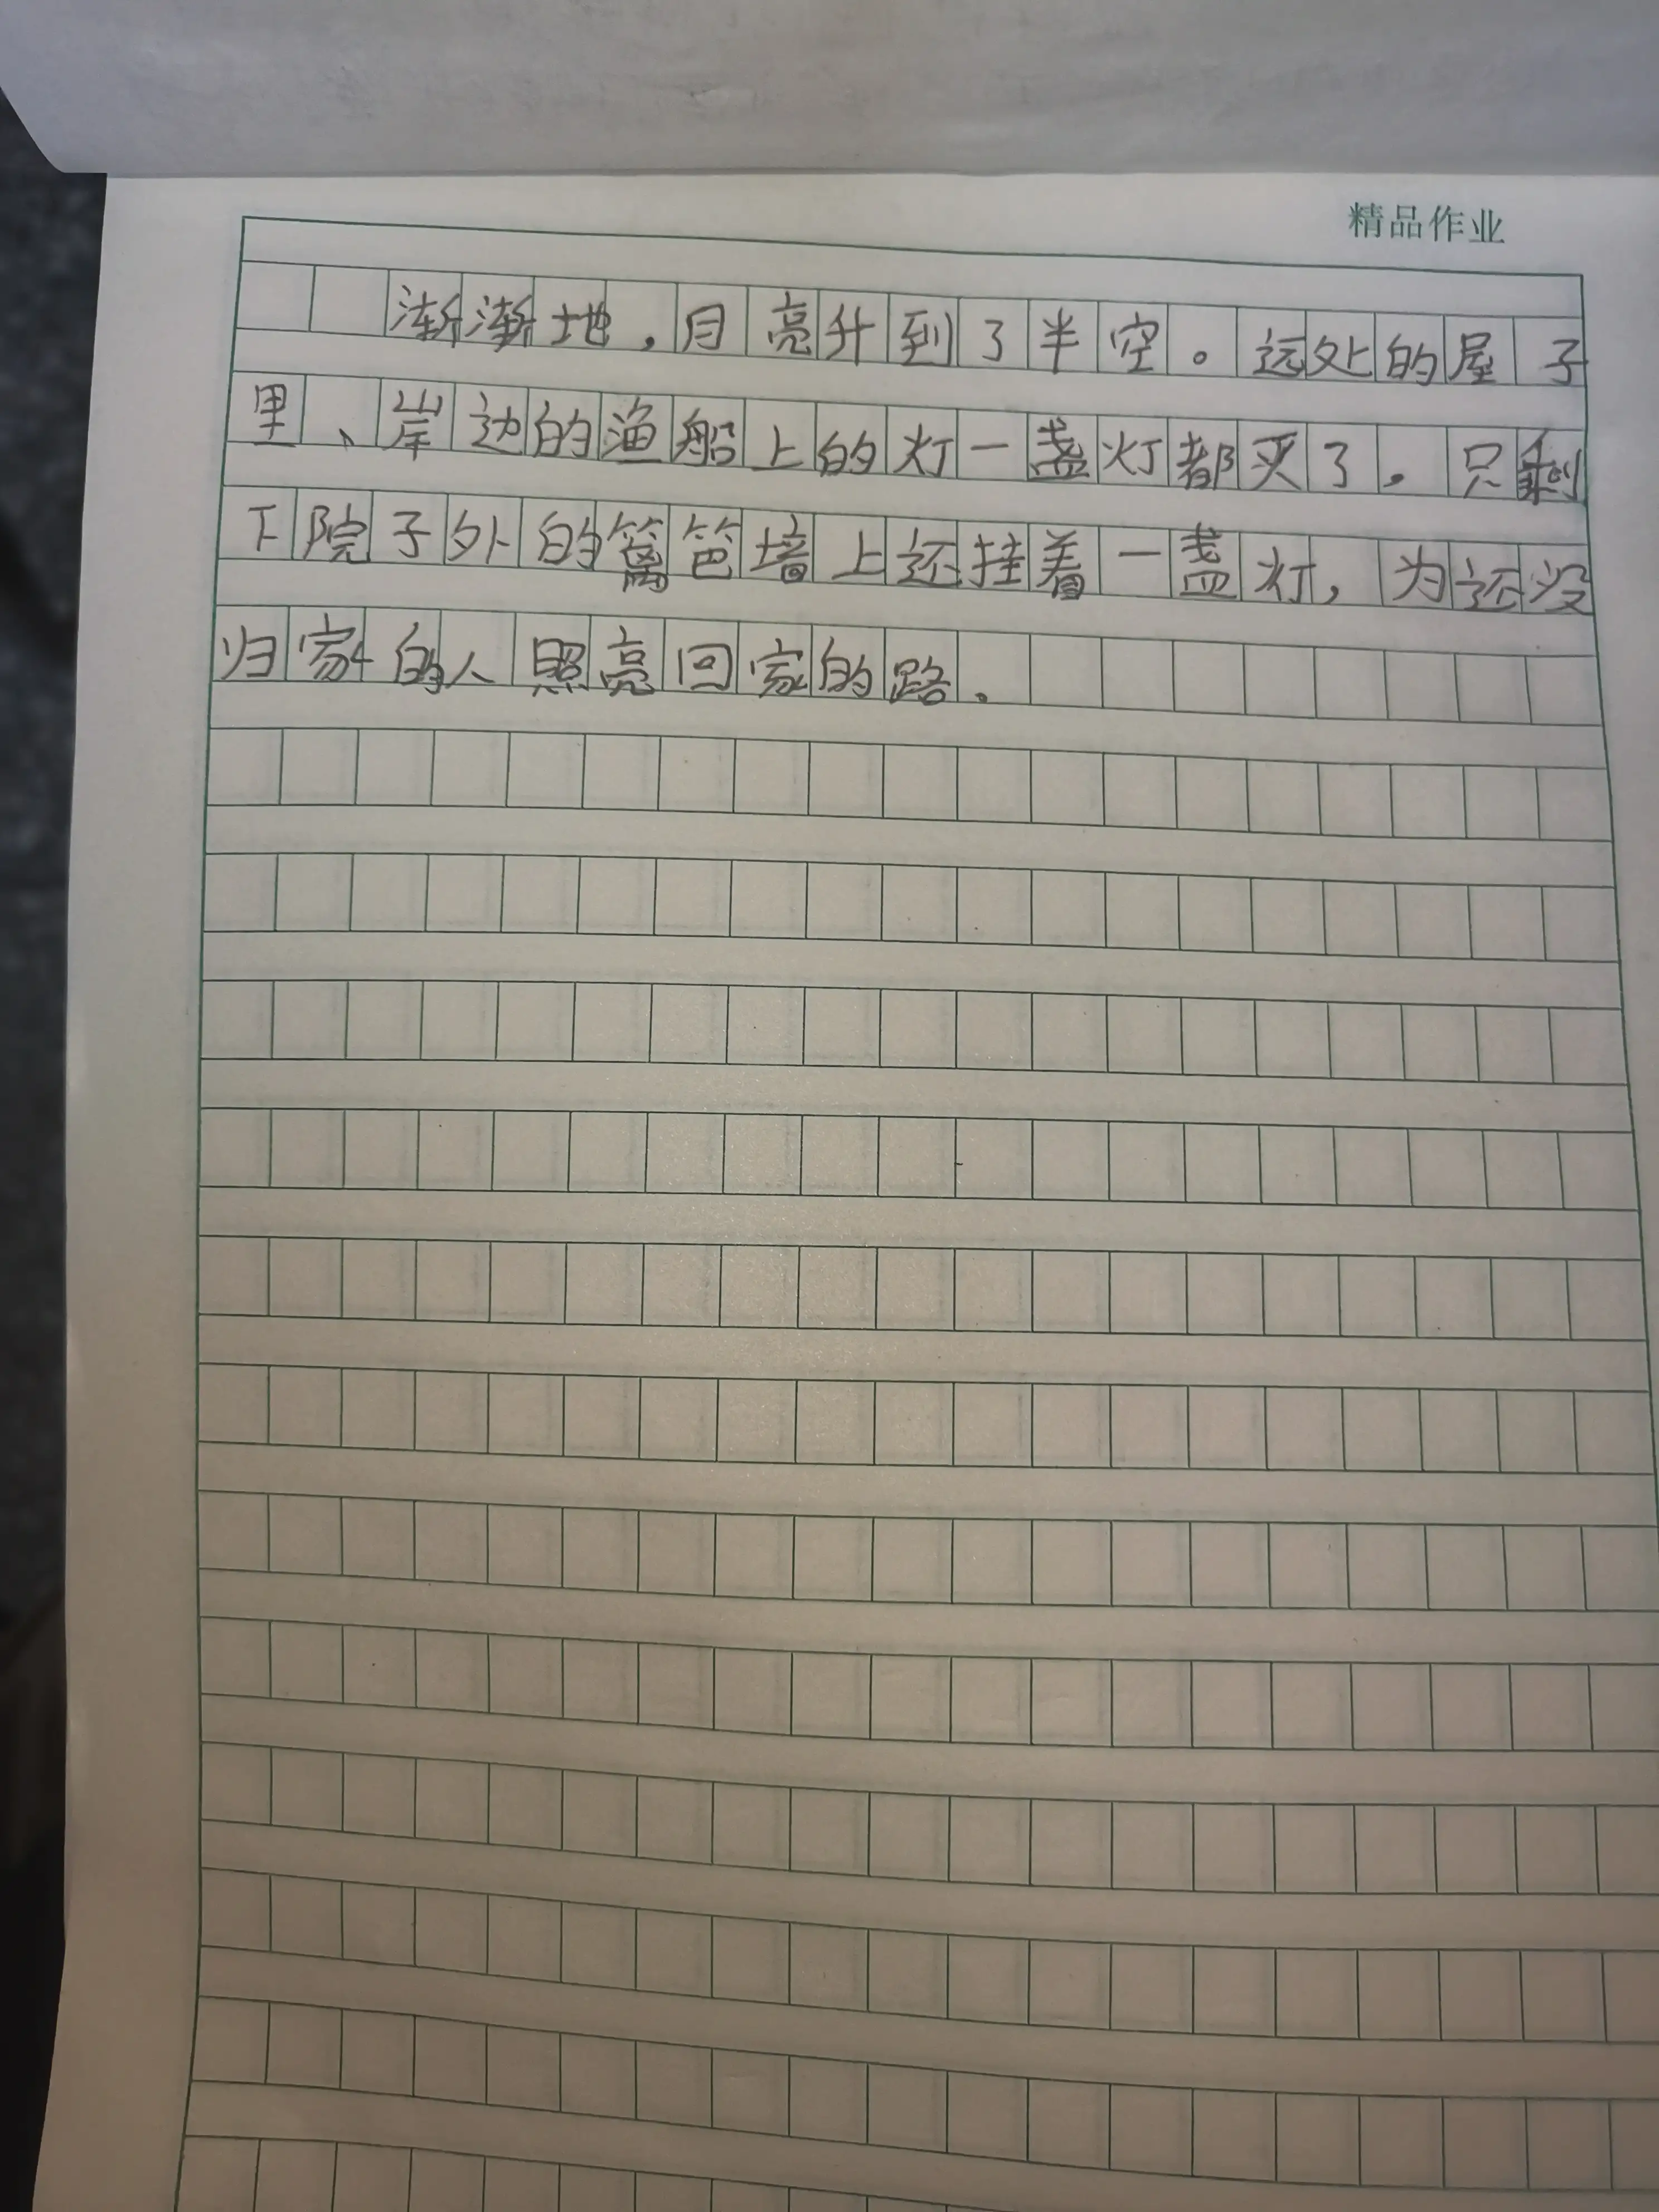 精品作业
渐渐地，月亮升到了半空。远处的屋子
里、岸边的渔船上的灯一盏灯都灭了。只剩
下院子外的篱笆墙上还挂着一盏灯，为还没
归家的人照亮回家的路。